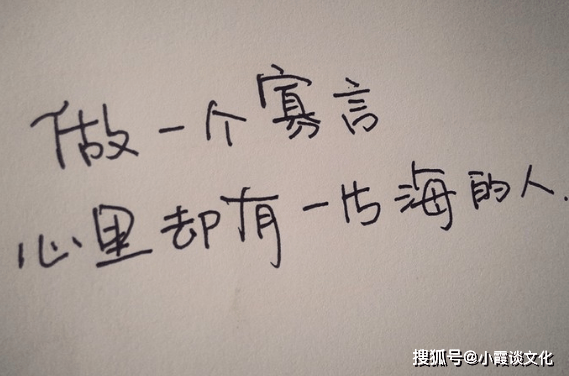 做一个寡言
心里却有一片海的人.
搜狐号@小霞谈文化